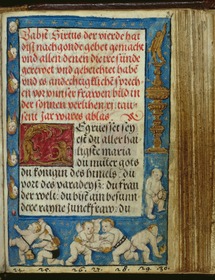 Babst Sixtus der vierde hat
diß nachgonde gebet gemacht
vnd allen denen die re sünd
gerewet vnd gebeichtet habē
vnd es andechtigklich sprech-
en vor vnser frawen bild in
der sonnen verlihen, xi tau-
sent jar wares ablas
Egrüsset sey
est du aller hai
ligste maria
du müter gots
du königin des himels: du
port des paradeyß: du frau
der welt: du bist ain besunn
dere rayne junckfraw: du